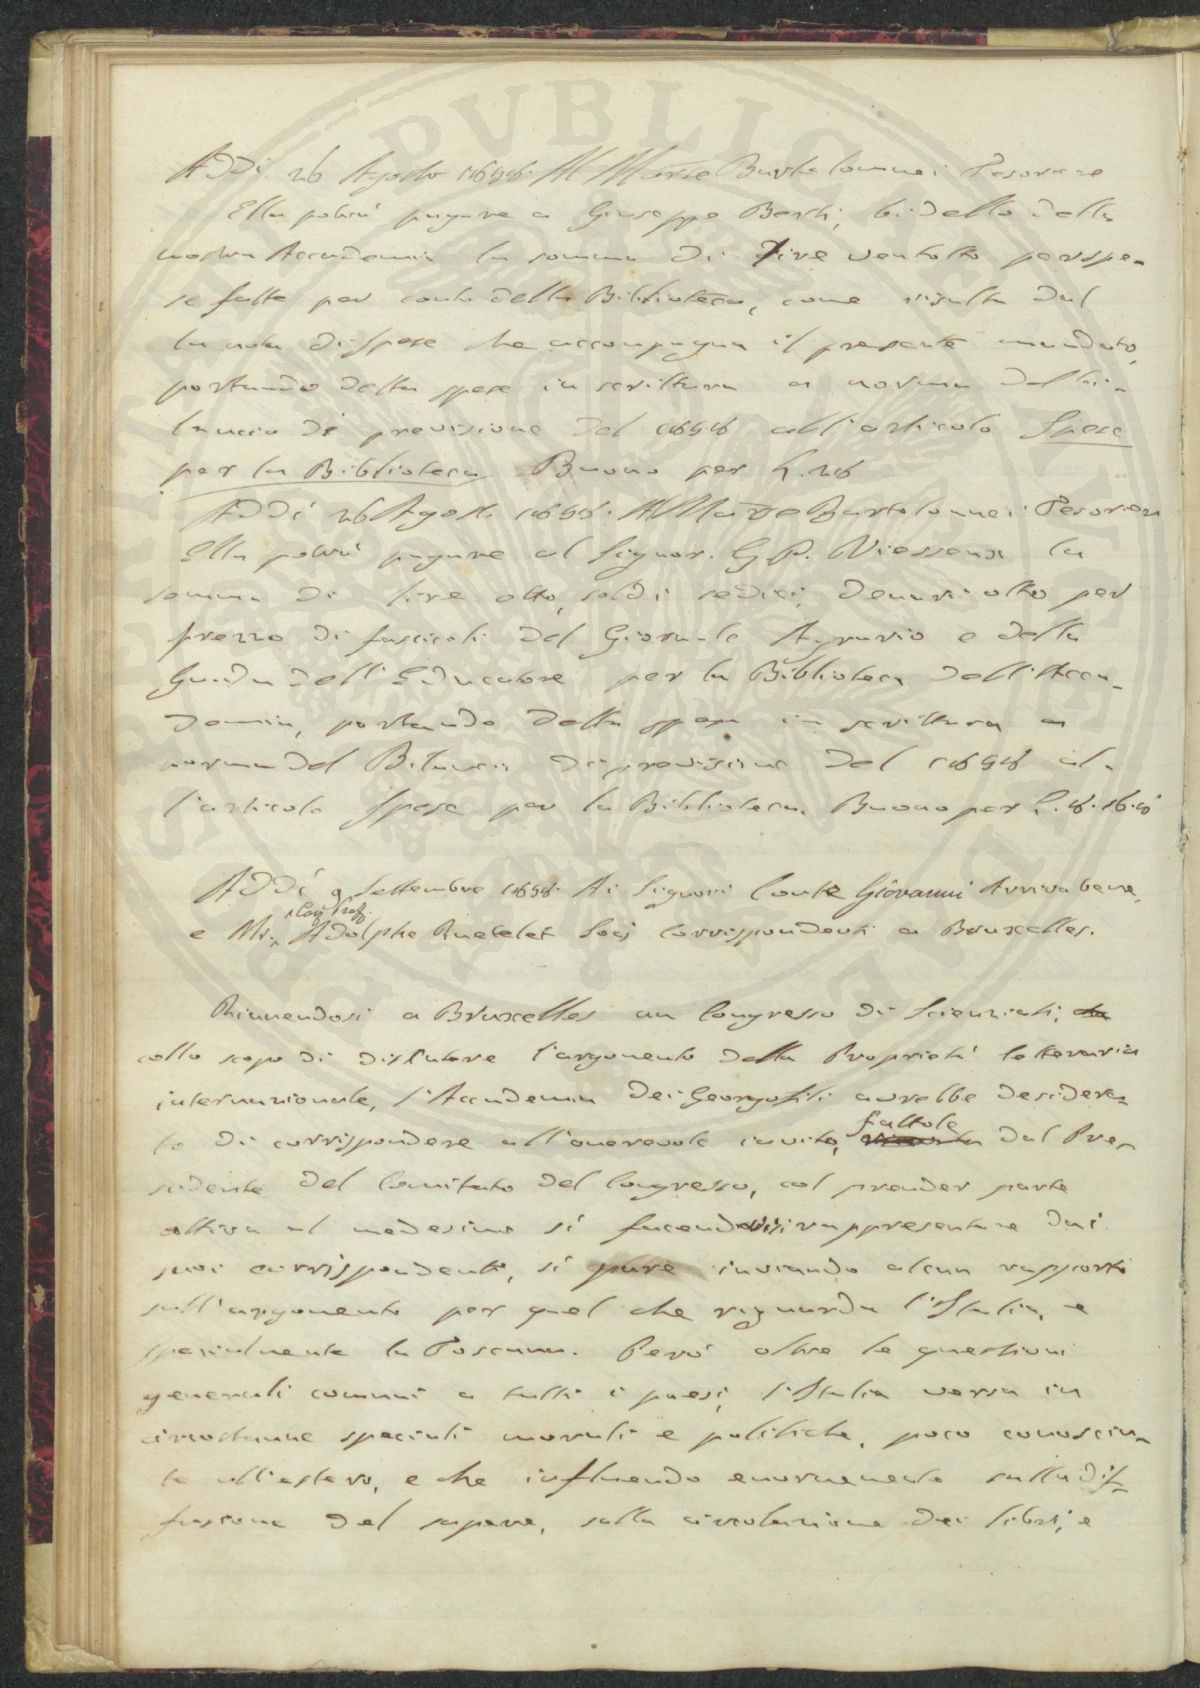 Addì 28 Agosto 1858. Al March.se Bartolommei Tesoriere
Ella potrà pagare a Giuseppe Berti, bidello della
nostra Accademia la somma di Lire ventotto per spe-
se fatte per conto della Biblioteca, come risulta dal
la nota di spese che accompagna il presente mandato,
portando detta spesa in scrittura a norma del bi-
lancio di previsione del 1858 all'articolo Spese
per la Biblioteca Buono per L. 28
Addì 28 Agosto 1858. Al March.se Bartolommei Tesoriere
Ella potrà pagare al Signor. G. P. Vieusseux la
somma di lire otto, soldi sedici, denari otto per
prezzo di fascicoli del Giornale Agrario e della
Guida dell'Educatore per la Biblioteca dell'Acca-
demia, portando detta spesa in scrittura a
norma del Bilancio di previsione del 1858 al-
l'articolo Spese per la Biblioteca. Buono per L. 8. 16. 8
Addì 9 Settembre 1858. Ai Signori Conte Giovanni Arrivabene,
Cav. Prof.
e Mr. Adolphe Quetelet Socj Corrispondenti a Bruxelles.
Riunendosi a Bruxelles un Congresso di Scienziati, che
collo scopo di discutere l'argomento della Proprietà letteraria
internazionale, l'Accademia dei Georgofili avrebbe desidera-
fattole
to di corrispondere all'onorevole invito, dal Pre-
sidente del Comitato del Congresso, col prender parte
attiva al medesimo sì facendovisi rappresentare dai
suoi corrispondenti, sì pure inviando alcun rapporto
sull'argomento per quel che riguarda l'Italia, e
specialmente la Toscana. Però oltre le questioni
generali comuni a tutti i paesi, l'Italia versa in
circostanze speciali morali e politiche, poco conosciu-
te all'estero, e che influendo enormemente sulla dif-
fusione del sapere, sulla circolazione dei libri, e